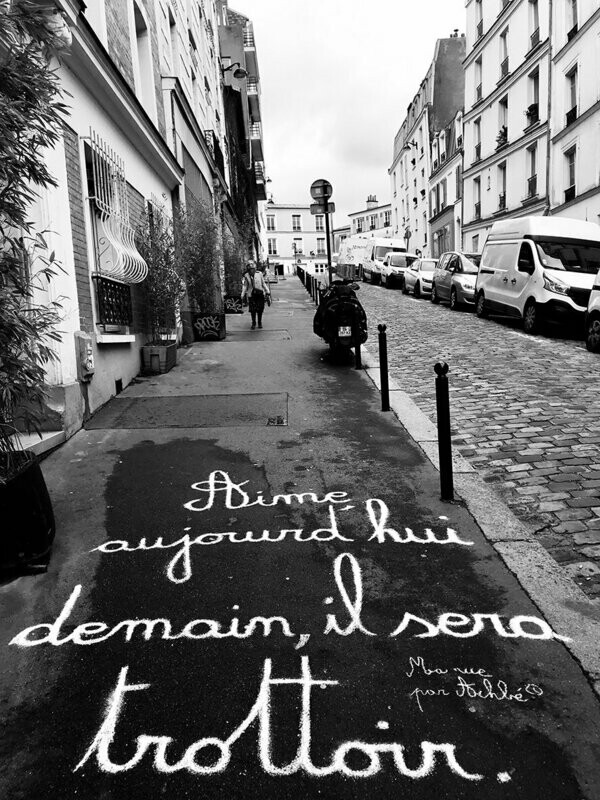 Aime
aujourd'hui
demain, il sera
trottoir.
Ma rue
par Achbé